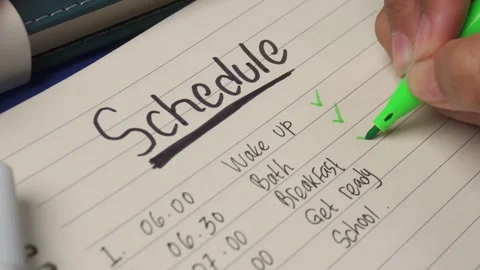 Schedule
1. 06.00 Wake up
06.30 Bath
07.00 Breakfast
Get ready
School.